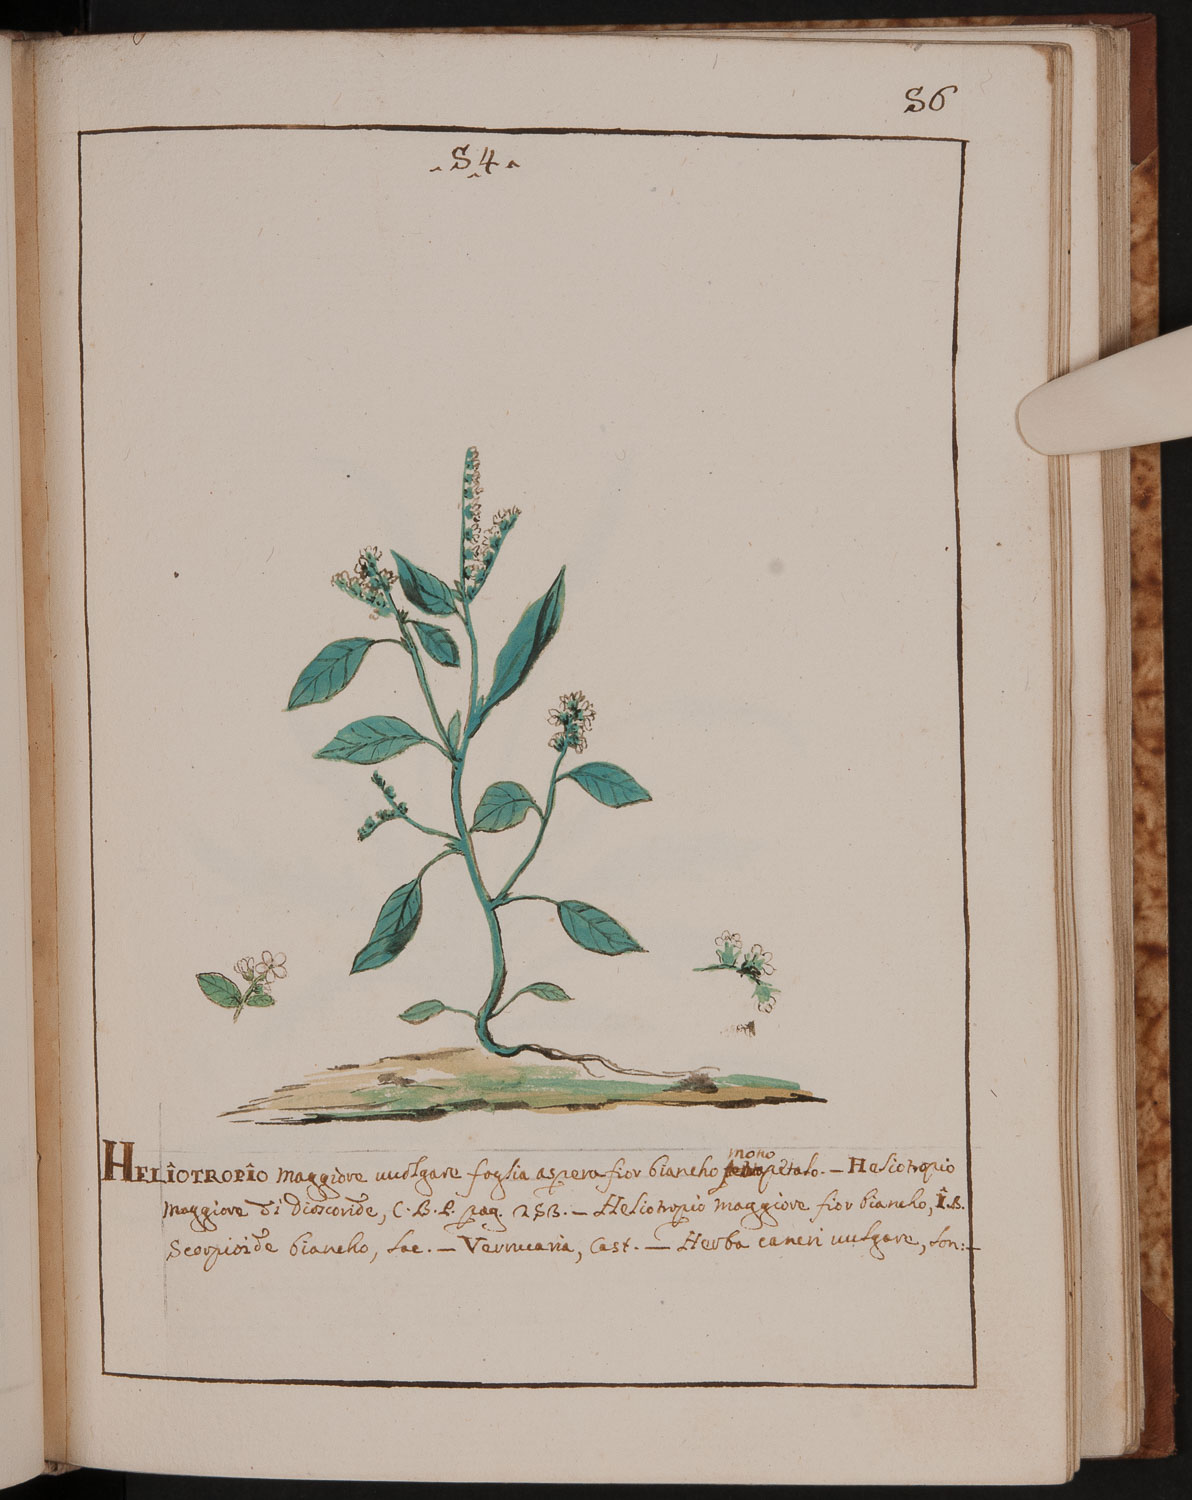 56
54
HELÎOTROPÎO maggiore uuolgare foglia aspera fior biancho monopetalo. — Heliotropio
maggiore di dioscoride, C. B. P. pag. 253. — Heliotropio maggiore fior biancho, I. B.
Scorpioide biancho, Lac. — Verrucaria, Cast. — Herba cancri uulgare, Lon: —